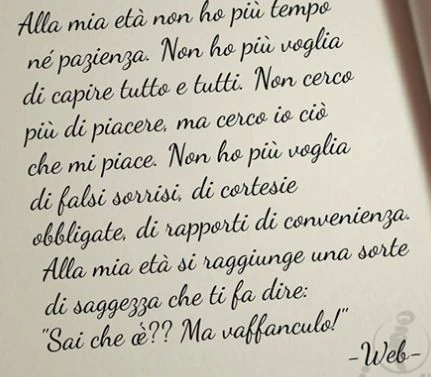 Alla mia età non ho più tempo
né pazienza. Non ho più voglia
di capire tutto e tutti. Non cerco
più di piacere, ma cerco io ciò
che mi piace. Non ho più voglia
di falsi sorrisi, di cortesie
obbligate, di rapporti di convenienza.
Alla mia età si raggiunge una sorte
di saggezza che ti fa dire:
"Sai che æ̀?? Ma vaffanculo!"
-Web-